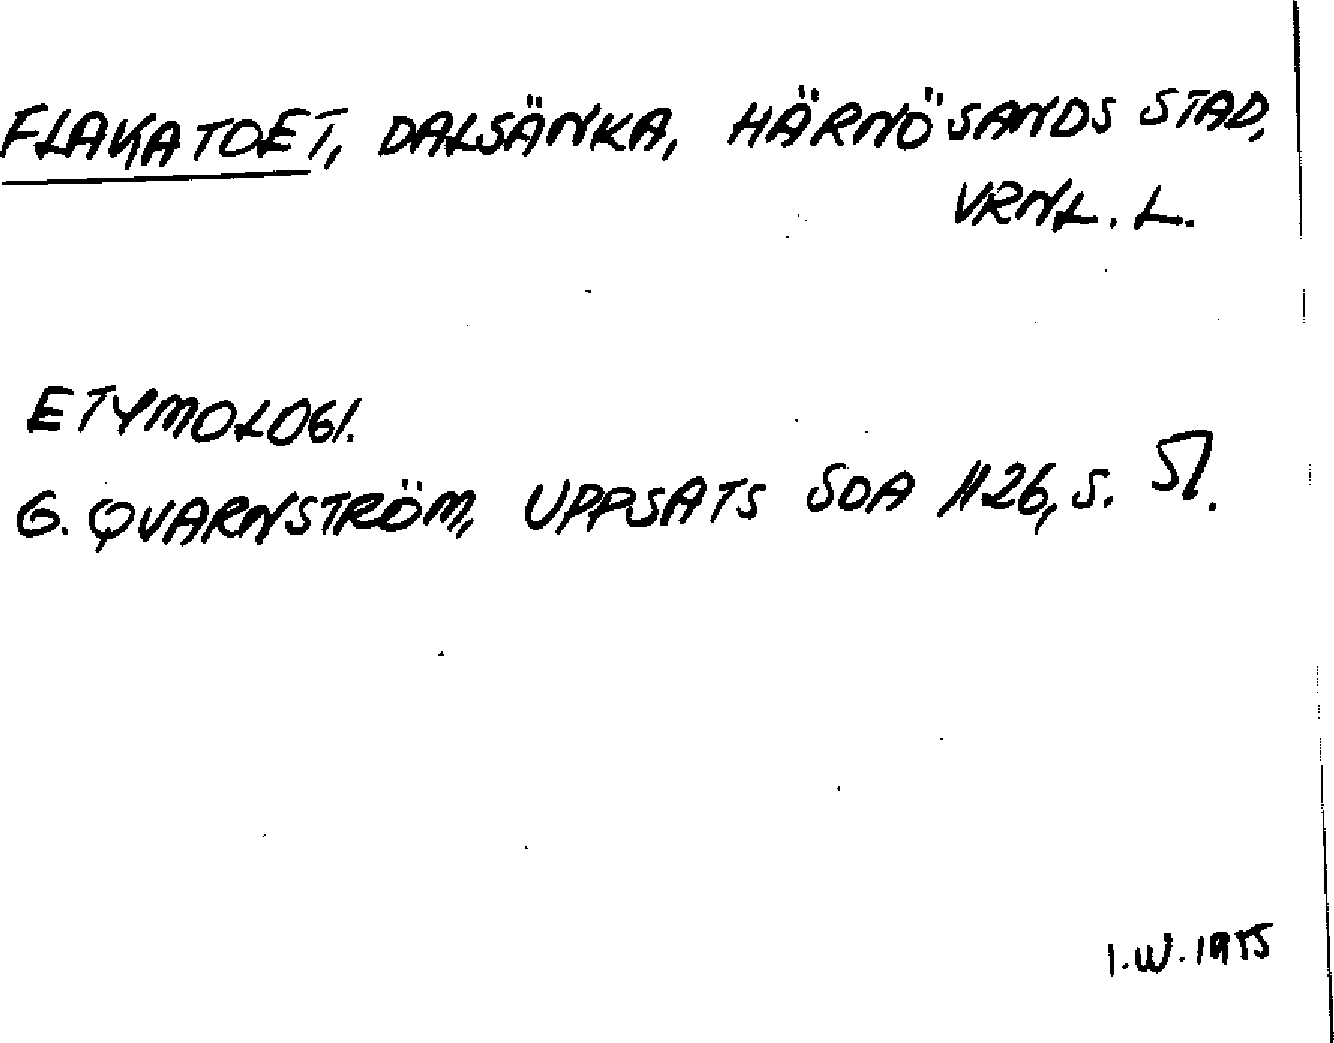 FLAKATOET, DALSÄNKA, HÄRNÖSANDS STAD,
VRNL. L.
ETYMOLOGI.
G. QVARNSTRÖM, UPPSATS SOA 1126, S. 51.
I.W. 1975